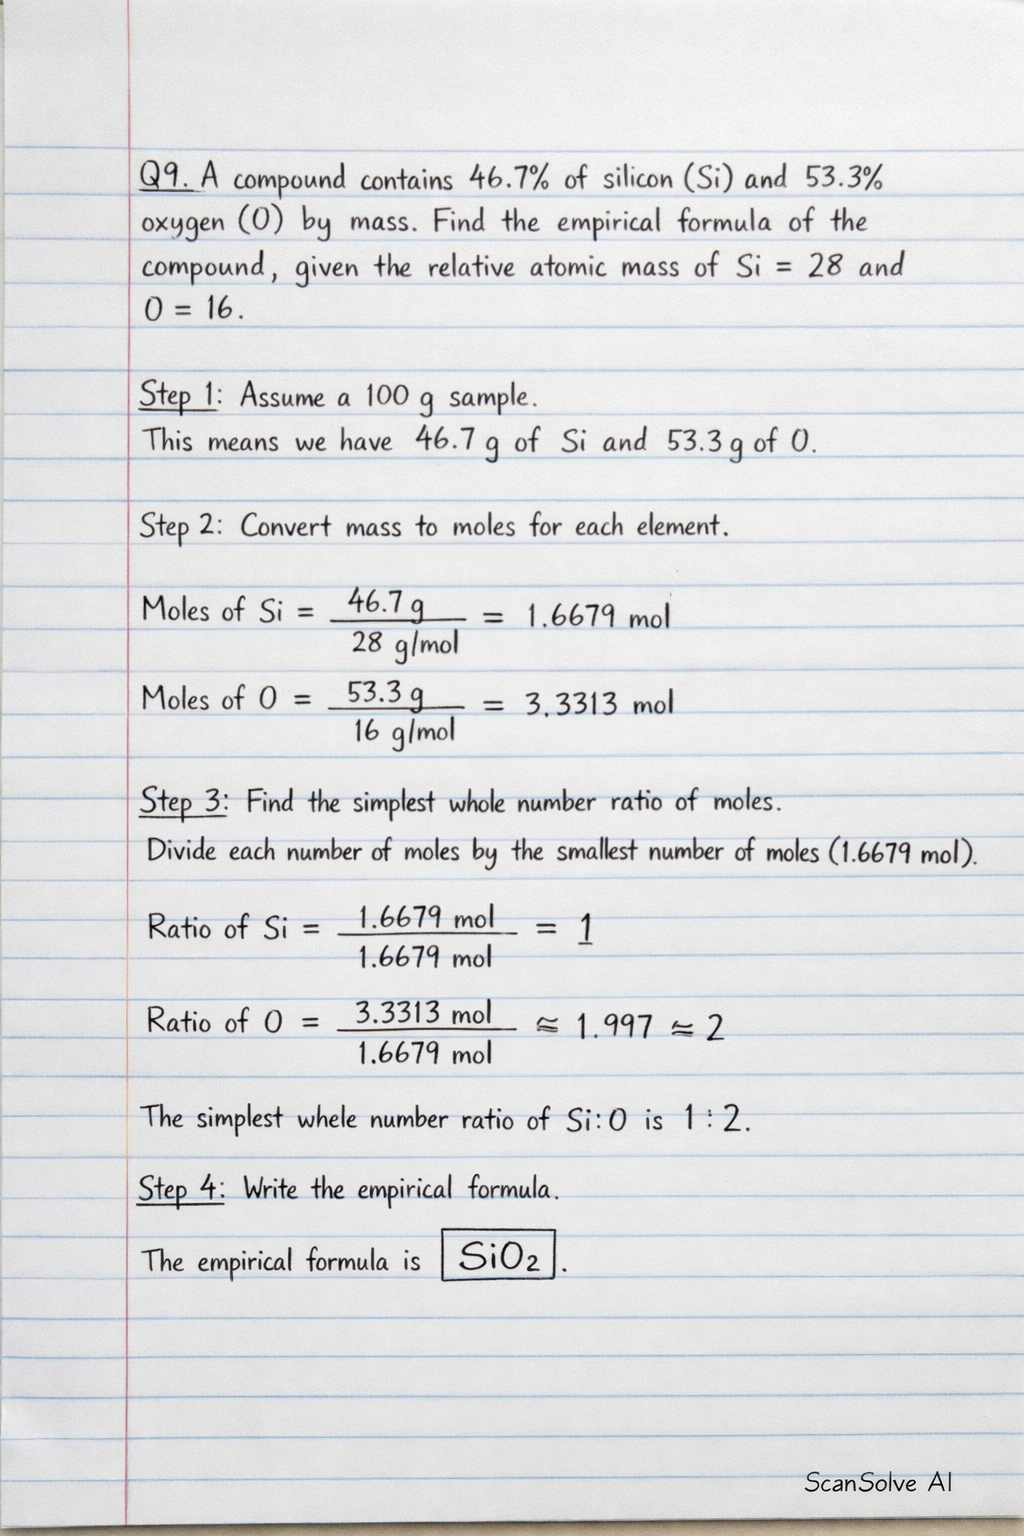 Q9. A compound contains 46.7% of silicon (Si) and 53.3%
oxygen (O) by mass. Find the empirical formula of the
compound, given the relative atomic mass of Si = 28 and
O = 16.
Step 1: Assume a 100 g sample.
This means we have 46.7 g of Si and 53.3 g of O.
Step 2: Convert mass to moles for each element.
Moles of Si = 46.7 g / 28 g/mol = 1.6679 mol
Moles of O = 53.3 g / 16 g/mol = 3.3313 mol
Step 3: Find the simplest whole number ratio of moles.
Divide each number of moles by the smallest number of moles (1.6679 mol).
Ratio of Si = 1.6679 mol / 1.6679 mol = 1
Ratio of O = 3.3313 mol / 1.6679 mol ≈ 1.997 ≈ 2
The simplest whele number ratio of Si:O is 1:2.
Step 4: Write the empirical formula.
The empirical formula is SiO₂.
ScanSolve AI